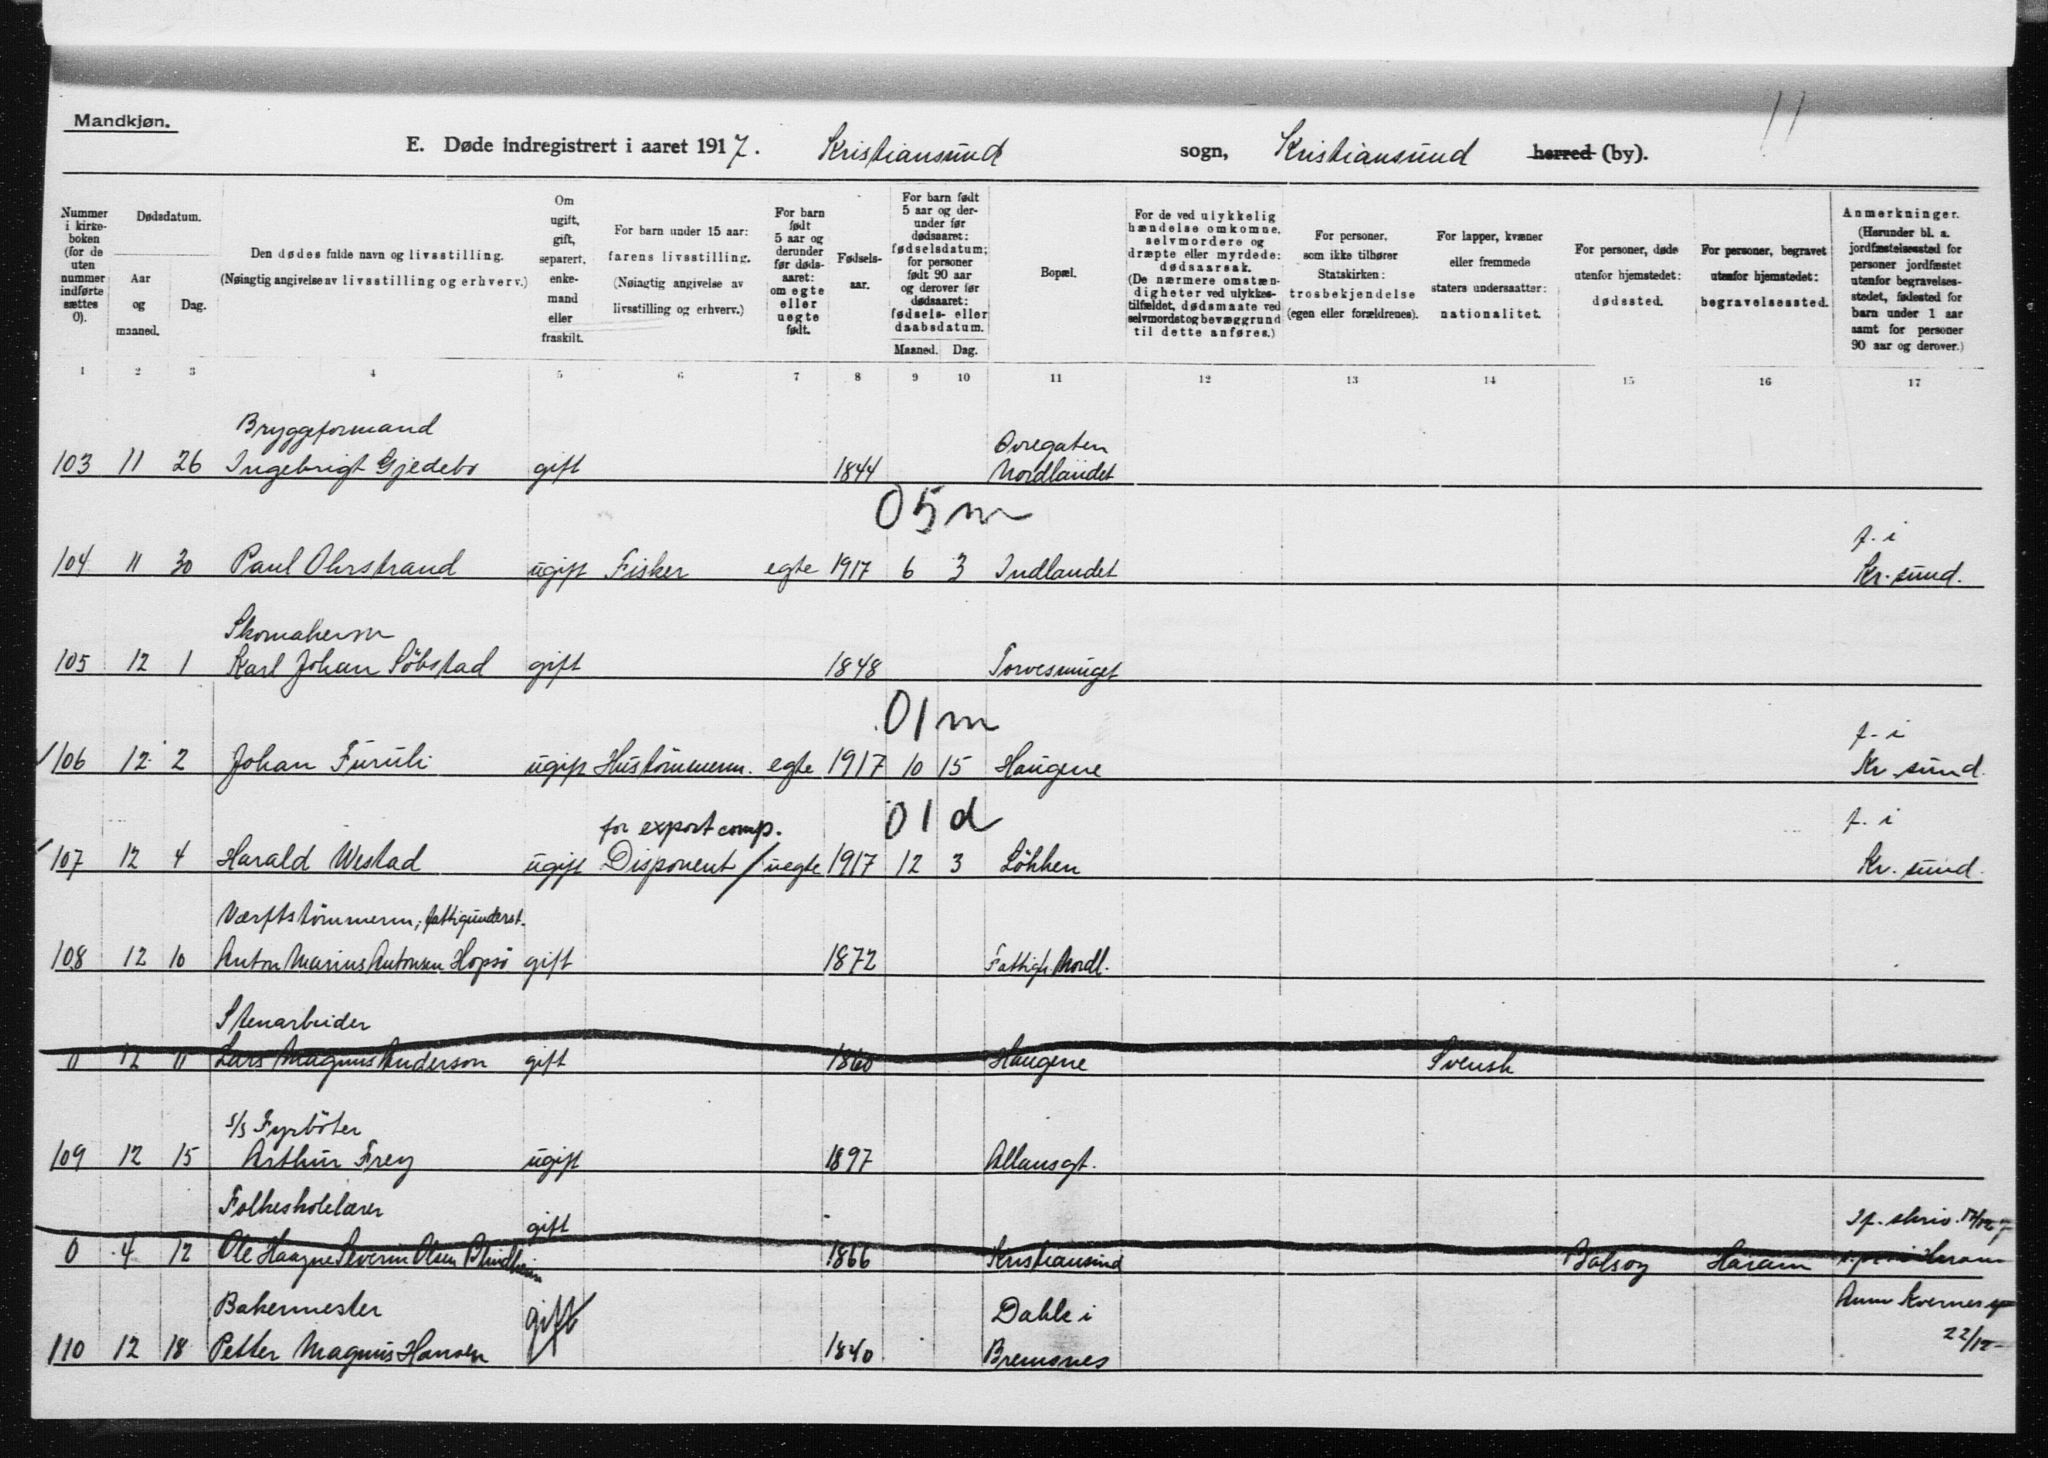 11
Mandkjøn.
E. Døde indregistrert i aaret 1917. Kristiansund sogn, Kristiansund herred (by).
Nummer i kirkeboken (for de uten nummer indførte sættes 0).
Dødsdatum.
Aar og maaned.
Dag.
Den dødes fulde navn og livsstilling.
(Nøiagtig angivelse av livsstilling og erhverv.)
Om ugift, gift, separert, enkemand eller fraskilt.
For barn under 15 aar: farens livsstilling. (Nøiagtig angivelse av livsstilling og erhverv.)
For barn født 5 aar og derunder før dødsaaret: om egte eller uegte født.
Fødselsaar.
For barn født 5 aar og derunder før dødsaaret: fødselsdatum; for personer født 90 aar og derover før dødsaaret: fødsels- eller daabsdatum.
Maaned. Dag.
Bopæl.
For de ved ulykkelig hændelse omkomne, selvmordere og dræpte eller myrdede: dødsaarsak. (De nærmere omstændigheter ved ulykkestilfældet, dødsmaate ved selvmordst og bevæggrund til dette anføres.)
For personer, som ikke tilhører Statskirken: trosbekjendelse (egen eller forældrenes).
For lapper, kvæner eller fremmede staters undersaatter: nationalitet.
For personer, døde utenfor hjemstedet: dødssted.
For personer, begravet utenfor hjemstedet: begravelsessted.
Anmerkninger. (Herunder bl. a. jordfæstelsessted for personer jordfæstet utenfor begravelsesstedet, fødested for barn under 1 aar samt for personer 90 aar og derover.)
1 2 3 4 5 6 7 8 9 10 11 12 13 14 15 16 17
Bryggeformand Øvregaten
103 11 26 Ingebrigt Gjedebo gift 1844 Nordlandet
05m
f. i
104 11 30 Paul Ohrstrand ugift Fisker egte 1917 6 3 Indlandet Kr. sund.
Skomakerm
105 12 1 Karl Johan Söbstad gift 1848 Torvesmuget
01m
f. i
106 12 2 Johan Furuli ugift Hustömmerm. egte 1917 10 15 Haugene Kr. sund.
for export comp. 01d f. i
107 12 4 Harald Westad ugift Disponent / uegte 1917 12 3 Lökken Kr. sund.
Værftstömmerm; fattigunderst.
108 12 10 Anton Marius Antonsen Hopsö gift 1872 Fattigh. Nordl.
Stenarbeider
0 12 11 Lars Magnus Anderson gift 1860 Haugene Svensk
s/s Fyrböter
109 12 15 Arthur Frey ugift 1897 Allansgt.
Folkeskolelærer gift
0 4 12 Ole Severin Olsen Blindheim 1866 Kristiansund Bolsöy Haram
Bakermester Dahle i
110 12 18 Petter Magnus Hansen gift 1840 Bremsnes 22/12